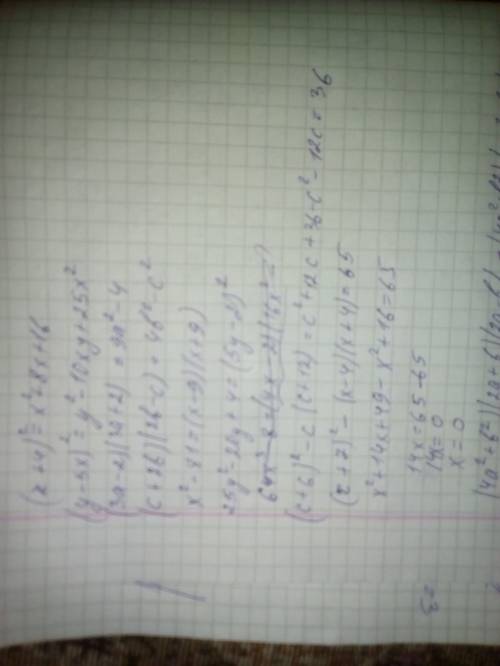 (x+4)² = x²+8x+16
(y-5x)² = y²-10xy+25x²
(3a-2)(3a+2) = 9a²-4
(c+2b)(2b-c) = 4b²-c²
x²-81=(x-9)(x+9)
25y²-20y+4=(5y-2)²
(c+6)²-c(c+12) = c²+12c+36-c²-12c=36
(x+7)²-(x-4)(x+4)=65
x²+14x+49-x²+16=65
14x=65-65
14x=0
x=0